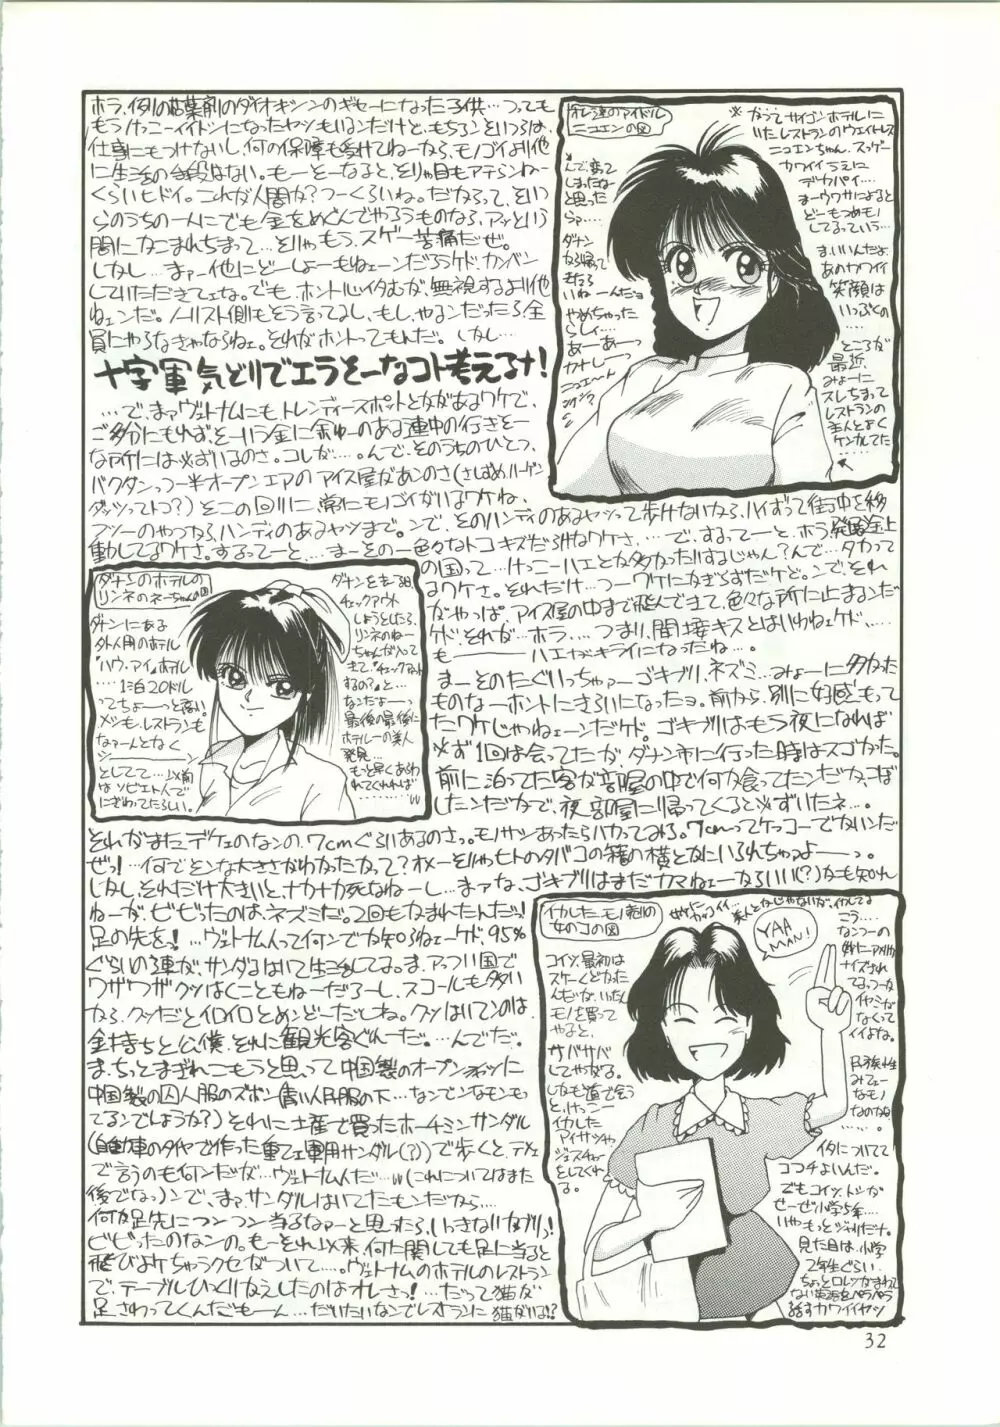 ホラ、例の枯葉剤のダイオキシンのギセーになった子供…つっても
もうけっこーイイトシになったヤツもいるンだけど、もちろんそういうのは、
仕事にもつけないし、何の保障も受けてねーから、モノゴイより他
に生活の手段はない。もーそーなると、そりゃ目もアテらんねー
くらいヒドイ。これが人間か?つーくらいね。だからって、そいつ
らのうちの一人にでも金をめぐんでやろうものなら、アッという
間にかこまれちまって…そりゃもう、スゲー苦痛だぜ。
しかし…まァ、他にどーしよーもねェーンだろうケド、カンベン
していただきてェな。でも、ホント心イタむが、無視するより他
ねェンだ。ノーリスト側もそう言ってるし、もし、やるンだったら全
員にやらなきゃならねェ。それがホントってもんだ。しかし…
十字軍気どりでエラそーなコト考えるナ!
…で、まァヴェトナムにもトレンディースポットとかがあるワケで、
ご多分にもれず、そーいう金に余ゆーのある連中の行きそー
な所には必ずいるのさ。コレが…。んで、そのうちのひとつ、
バクダンつっ一半オープンエアのアイス屋があンのさ(さしずめハーゲン
ダッツってトコ?)そこの回りに、常にモノゴイがいるワケね、
フツーのやつから、ハンディのあるヤツまで。ンで、そのハンディのあるヤツって歩けないから、ハイずって街中を移
動してるワケさ。するってーと、…まーその一色々なトコキズだらけなワケさ、…で、するってーと、ホラ発展途上
の国って…けっこーハエとか多かったりするじゃん?んで…タカって
るワケさ。それだけ…つーワケにはいかずだケど。ンで、それ
がやっぱ、アイス屋の中まで飛んできて、色々な所に止まるンだ
ケド、それが…ホラ…、つまり、間接キスとはいわねェケド、…
も――――ハエがキライになったね…。
まーそのたぐいっちゃァーゴキブリ、ネズミ…みょーに多かった
ものなーホントにきらいになったョ。前から、別に好感もって
たワケじゃねェーンだケド。ゴキブリはもう夜になれば
必ず1回は会ってたが、ダナン市に行った時はスゴかった。
前に泊ってた客が部屋の中で何か食ってたンだか、こぼ
したンだかで、夜部屋に帰ってくると必ずいたネ…。
それがまたデケェのなんの、7cmぐらいあるのさっ。モノサシあったらハカってみろ。7cmってケッコーでかいンだ
ぜ!…何でそンな大きさがわかったかって?オメーそりゃヒトのタバコの箱の横とかにいるれちゃうよーっ。
しかし、それだけ大きいと、ナカナカ死なねーし…まァな、ゴキブリはまだカマねェーからいい(?)かも知れ
ねーが、ビビったのは、ネズミだ。2回もかまれたんだっ!
足の先をっ!…ヴェトナム人って何ンでか知らねェーケド、95%
ぐらいの確率が、サンダルはいて生活してる。ま、アッつい国で
ワザワザクツはくこともねーだろーし、スコールも多い
から、クツだとイロイロとめンどーだしね。クツはいてンのは、
金持ちと公僕、それに観光客ぐれーだ。…んでだ。
ま、ちっとまぎれこもうと思って中国製のオープンシャツに
中国製の囚人服のズボン(青い人民服の下…なンでンなモンもっ
てるンでしょうか?)それに土産で買ったホーチミンサンダル
(自動車のタイヤで作った重てェ軍用サンダル(?))で歩くと、テメェ
で言うのも何ンだが…ヴェトナム人だ…w(これについてはまた
後でなっ)ンで、まァサンダルはいてたモンだから…
何か足先にツンツン当るなァーと思ったら、いきなりガブリ!
ビビったのなンの。もーそれ以来、何に関しても足に当ると
飛びよけちゃうクセがついて…。ヴェトナムのホテルのレストラン
で、テーブルひっくりかえしたのはオレさっ!…だって猫が
足さわってくんだもーん…だいたいなンでレストランに猫がいる!?
オレ達のアイドル
ニュエンの図
※かつてサイゴンホテルに
いたレストランのウェイトレス
ニュエンちゃん、スッゲー
カワイイうえに
デカパイ…
まーウワサによると
どーもつめモノ
してるっていう…
ま、いいんだよ、
あのカワイイ
笑顔は
いっぷくの
……
ところが
最近、
みょーに
スレちまって
レストランの
主人とよく
ケンカしてた
……
んで、変って
しまったなと
思った
らァ…
ダナン
から帰って
きたら
いねーんだョ
やめちゃった
らしィ…
あーあーっ
カナしー
ニュエーん
ダナンのホテルの
リンネのネーちゃんの図
ダナンにある
外人用のホテル
“ハウ・アイ”ホテル
…1泊20ドル
ってちょーっと高い。
メシも、レストランも
なァーんとなく
シ―――ン
としてて…以前
は ソビエト人で
にぎわってたらしい。
ダナンを去る日
チェックアウト
しようとしたら、
リンネのねー
ちゃんが入って
きて、“チェックアウト
するの?”と…
なンだよーっ
最後の最後に
ホテル一の美人
発見…
もっと早くあらわ
れてくれれば
………w
イカした、モノ売りの
女のコの図
YAA,
MAN!
コイツ、最初は
スゲーくどかった
んだが、いったん
モノを買って
やると、
サバサバ
してやがる。
しかも道で会う
と、けっこー
イカした
アイサツや
ジェスチャー
をしてくれ
る。
民族性
みてェー
なモノ
なのかな
……
イタについてて
ココチよいんだ。
でもコイツ、トシが
せーぜい小学5年…
いやもっとジャリだナ。
見た目は、小学
2年生ぐらい
ちょっとロレツがまわって
ない英語をペラペラ
話すカワイイヤツ
32